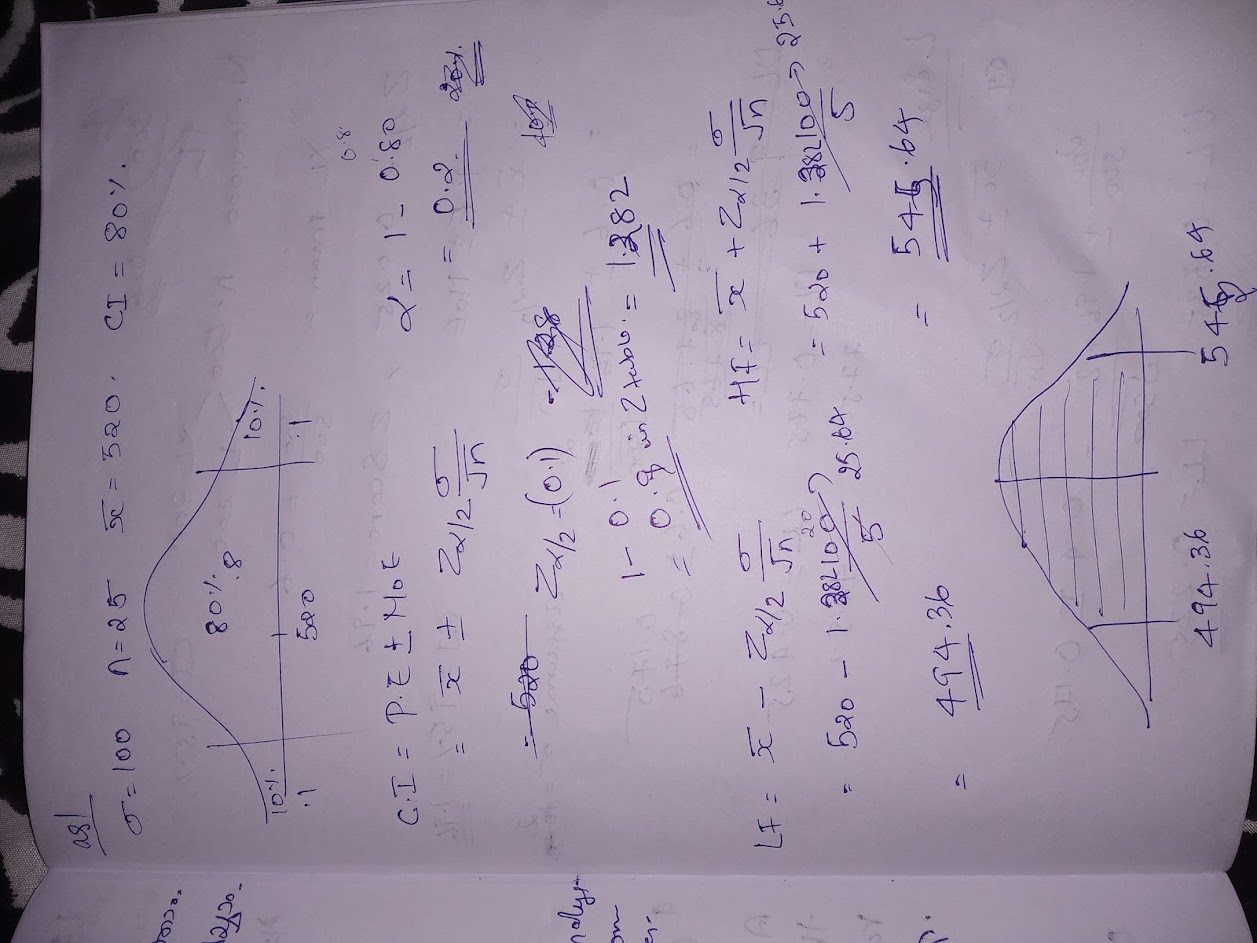 σ=100 n=25 x̄=520. CI=80%.
80%
.8
10%
.1
10%
.1
520
C.I = P.E ± MoE
= x̄ ± Zα/2 σ/√n
α = 1 - 0.80
0.8
= 0.2
= 520
Zα/2 = (0.1)
1 - 0.1
0.9 in Z table = 1.282
LF = x̄ - Zα/2 σ/√n
= 520 - 1.282 100/5
20
25.64
= 494.36
HF = x̄ + Zα/2 σ/√n
= 520 + 1.282 100/5 → 25.6
= 545.64
494.36
545.64